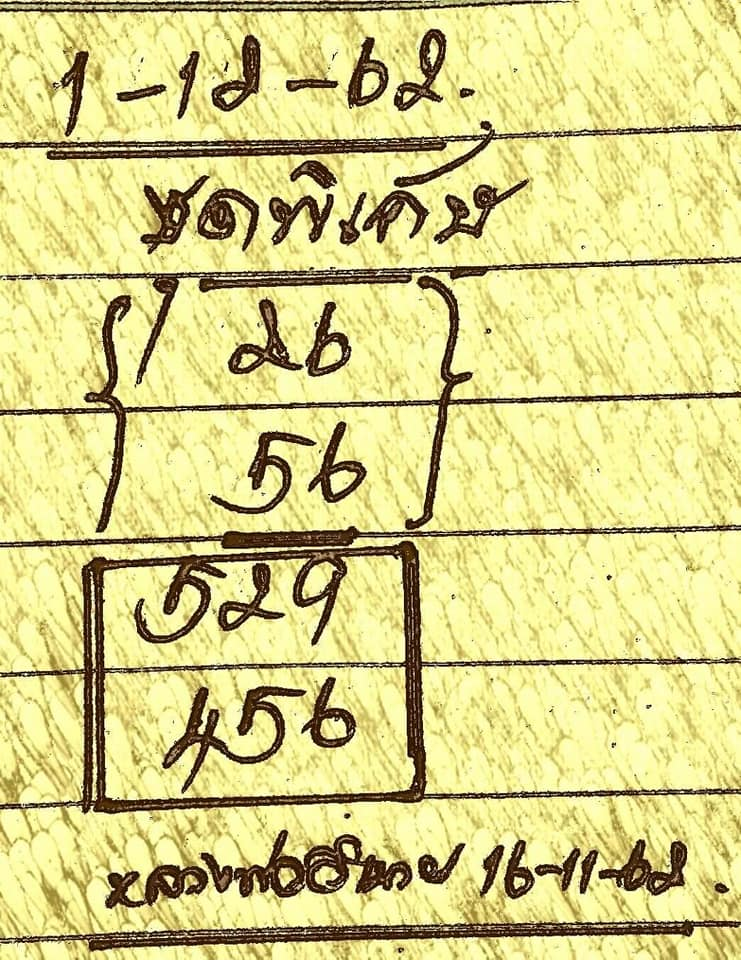 1-12-62.
ชุดพิเศษ
26
56
529
456
หลวงพ่ออินทวย 16-11-62.